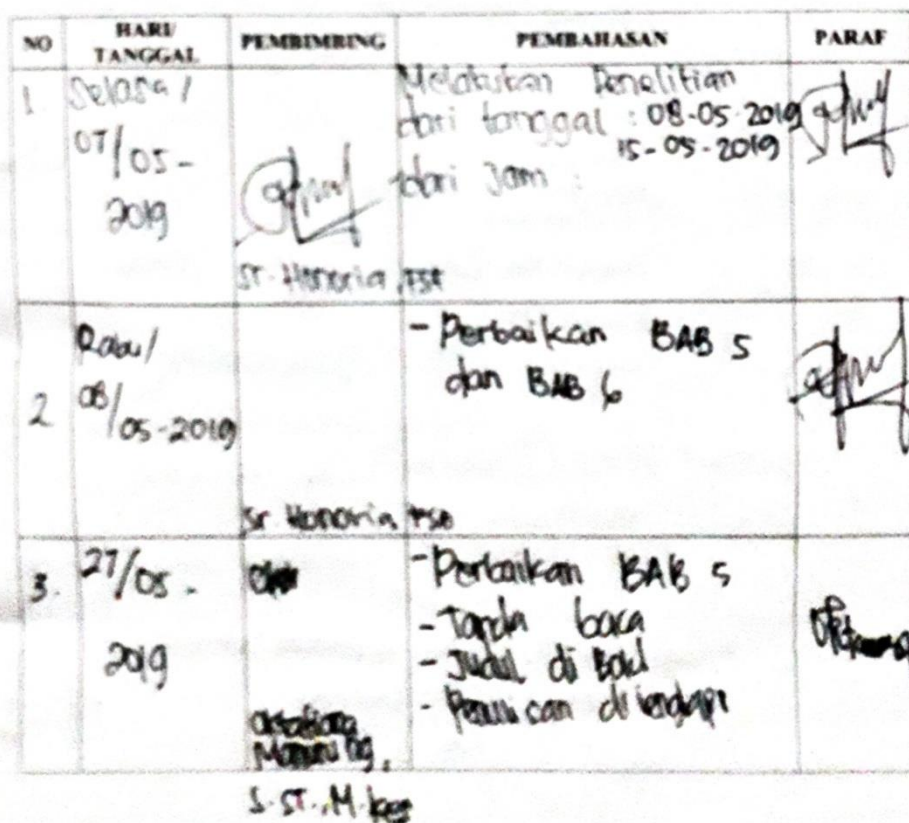 NO HARI/ TANGGAL PEMBIMBING PEMBAHASAN PARAF
1. Selasa/
07/05-
2019
Sr. Honoria, FSE
Melakukan Penelitian
dari tanggal : 08-05-2019
15-05-2019
dari Jam :
2 Rabu/
08/05-2019
Sr. Honoria FSE
- Perbaikan BAB 5
dan BAB 6
3. 27/05-
2019
S.ST., M.Kes
- Perbaikan BAB 5
- Tanda baca
- Judul di Bold
- di lengkapi